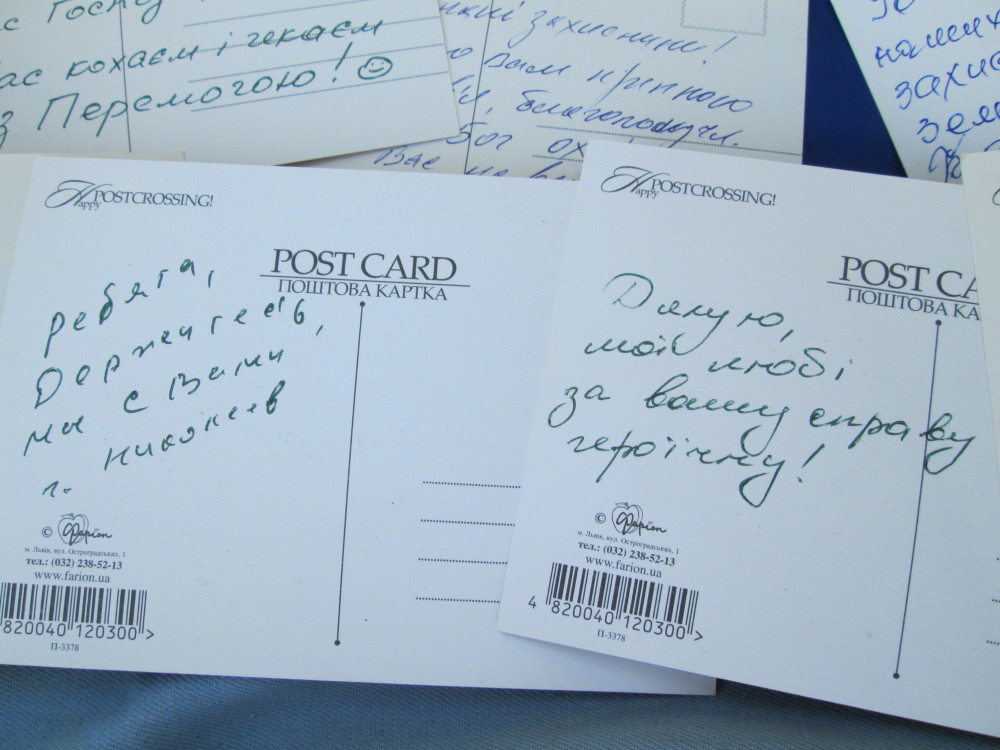 с Госпу
ас кохаєм і чекаєм
з Перемогою! ☺
захисники!
вам крипкого
благополуччя.
Бог ох
Вас
наших
захис
зем
Happy POSTCROSSING!
POST CARD
ПОШТОВА КАРТКА
ребята,
Держитесь,
мы с Вами
г. николаев
© Фаріон
м. Львів, вул. Остроградських, 1
тел.: (032) 238-52-13
www.farion.ua
820040 120300 >
П-3378
Happy POSTCROSSING!
POST CA
ПОШТОВА КА
Дякую,
мої любі
за вашу справу
героїчну!
© Фаріон
м. Львів, вул. Остроградських, 1
тел.: (032) 238-52-13
www.farion.ua
4 820040 120300 >
П-3378